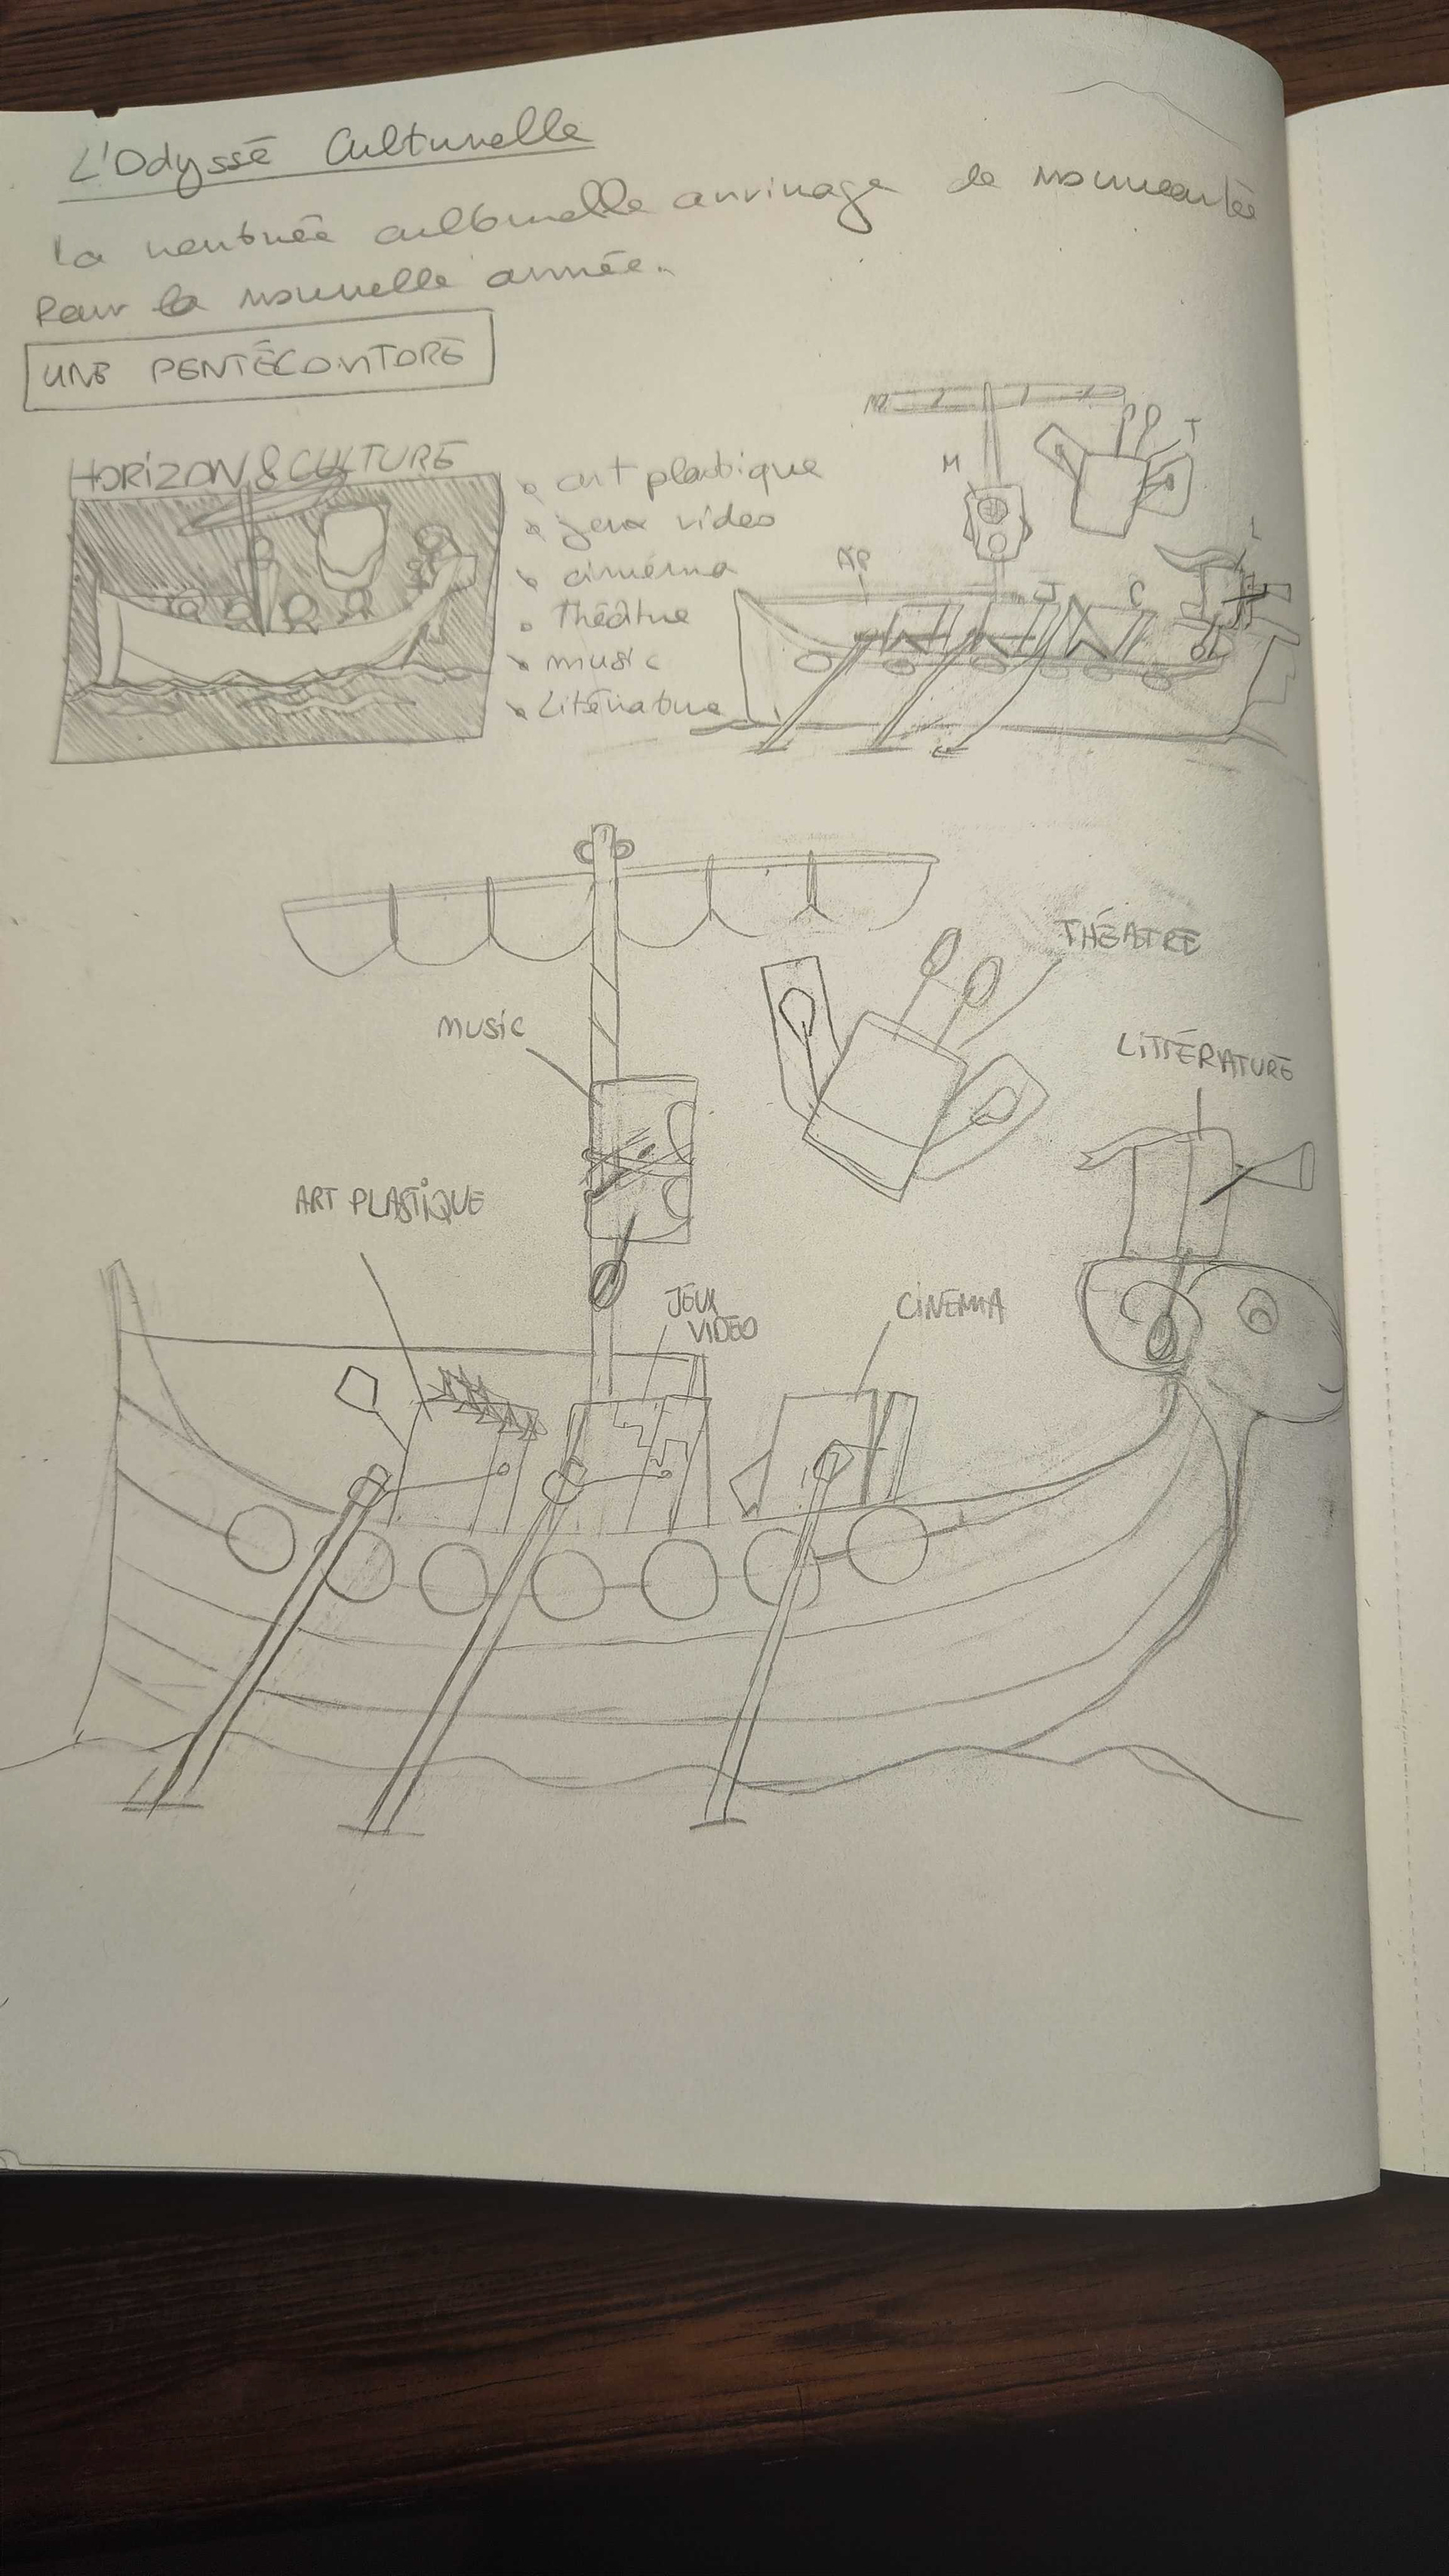 L'Odyssé Culturelle
la rentrée culturelle arrivage de nouveautés
Pour la nouvelle année.
UNE PENTÉCONTORE
HORIZON & CULTURE
art plastique
jeux video
cinéma
théâtre
music
Litérature
M
T
L
AP
J
C
THÉATRE
MUSIC
LITTÉRATURE
ART PLASTIQUE
JEUX
VIDEO
CINEMA